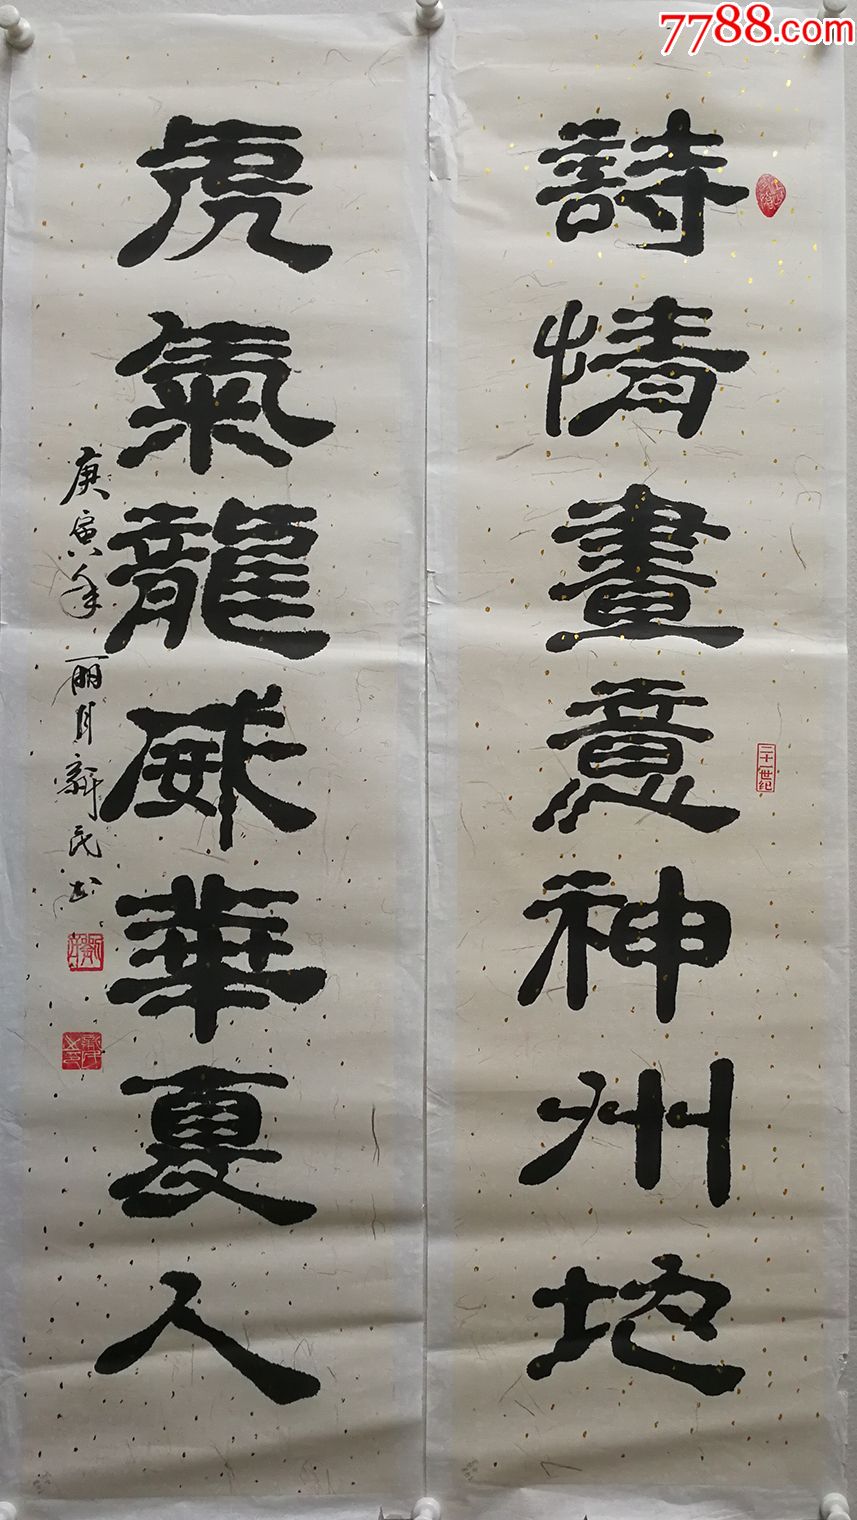 7788.com
詩情畫意神州地
二十一世纪
虎氣龍威華夏人
庚寅年丽月新民书